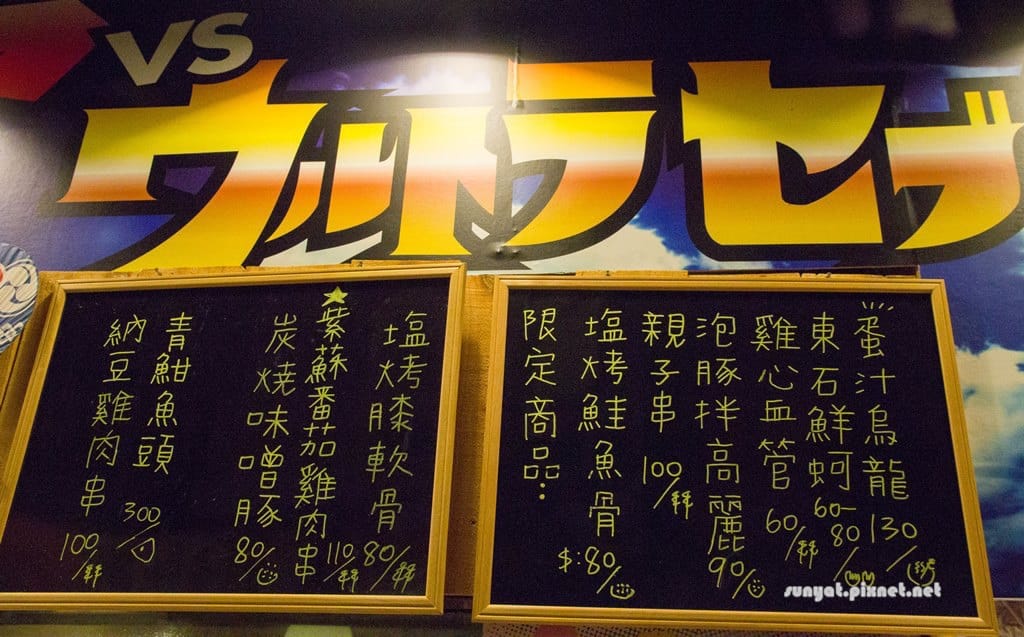 VS
ウルトラセブ
蛋汁烏龍 130/
東石鮮蚵 60-80/
雞心血管 60/串
泡豚拌高麗 90/
親子串 100/串
塩烤鮭魚骨 $:80/
限定商品:
塩烤膝軟骨 80/串
紫蘇番茄雞肉串 110/串
炭燒味噌豚 80/
青魽魚頭 300/
納豆雞肉串 100/串
sunyat.pixnet.net